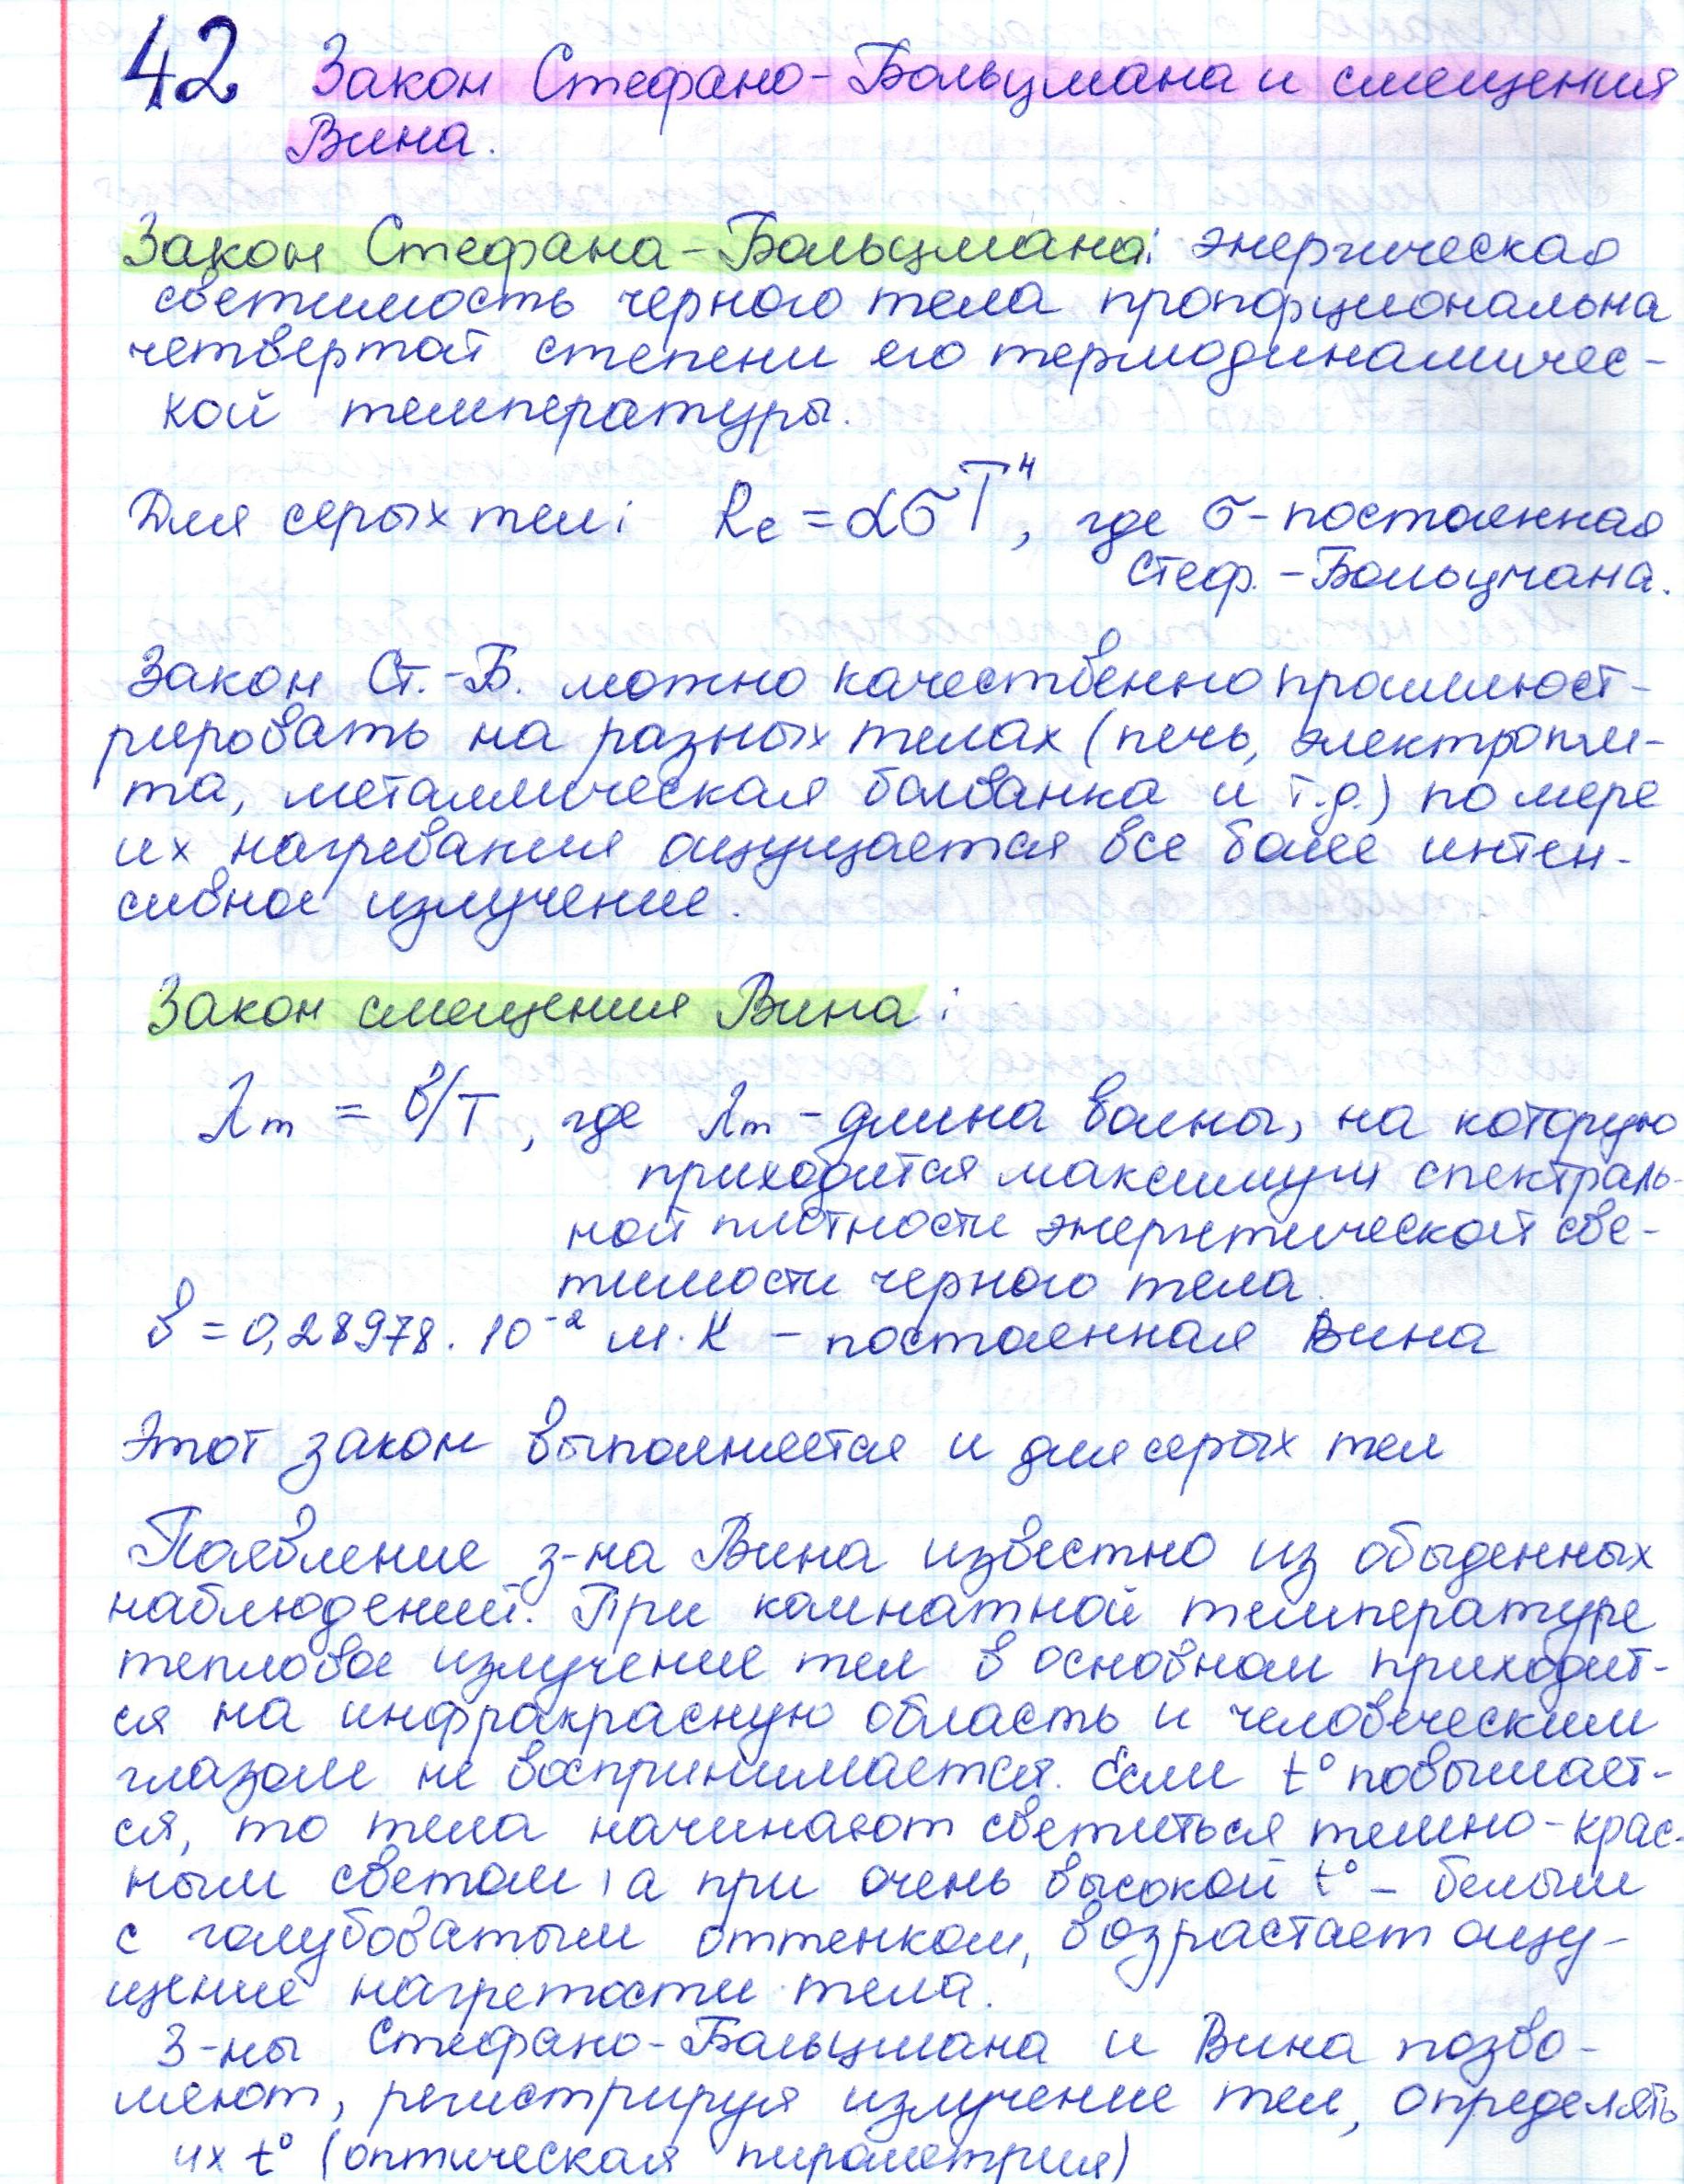 42 Закон Стефано-Больцмана и смещения
Вина.
Закон Стефана-Больцмана: энергическая
светимость черного тела пропорциональна
четвертой степени его термодинамичес-
кой температуры.
Для серых тел: Re = ασT⁴, где σ - постоянная
Стеф. - Больцмана.
Закон Ст.-Б. можно качественно проиллюст-
рировать на разных телах (печь, электропли-
та, металлическая болванка и т.д.) по мере
их нагревания ощущается все более интен-
сивное излучение.
Закон смещения Вина:
λm = в/T, где λm - длина волны, на которую
приходится максимум спектраль-
ной плотности энергетической све-
тимости черного тела.
в = 0,28978 · 10⁻² м·К - постоянная Вина
Этот закон выполняется и для серых тел
Появление з-на Вина известно из обыденных
наблюдений. При комнатной температуре
тепловое излучение тел в основном приходит-
ся на инфракрасную область и человеческим
глазом не воспринимается. Если t° повышает-
ся, то тела начинают светиться темно-крас-
ным светом, а при очень высокой t° - белым
с голубоватым оттенком, возрастает ощу-
щение нагретости тела.
З-ны Стефано-Больцмана и Вина позво-
ляют, регистрируя излучение тел, определять
их t° (оптическая пирометрия)